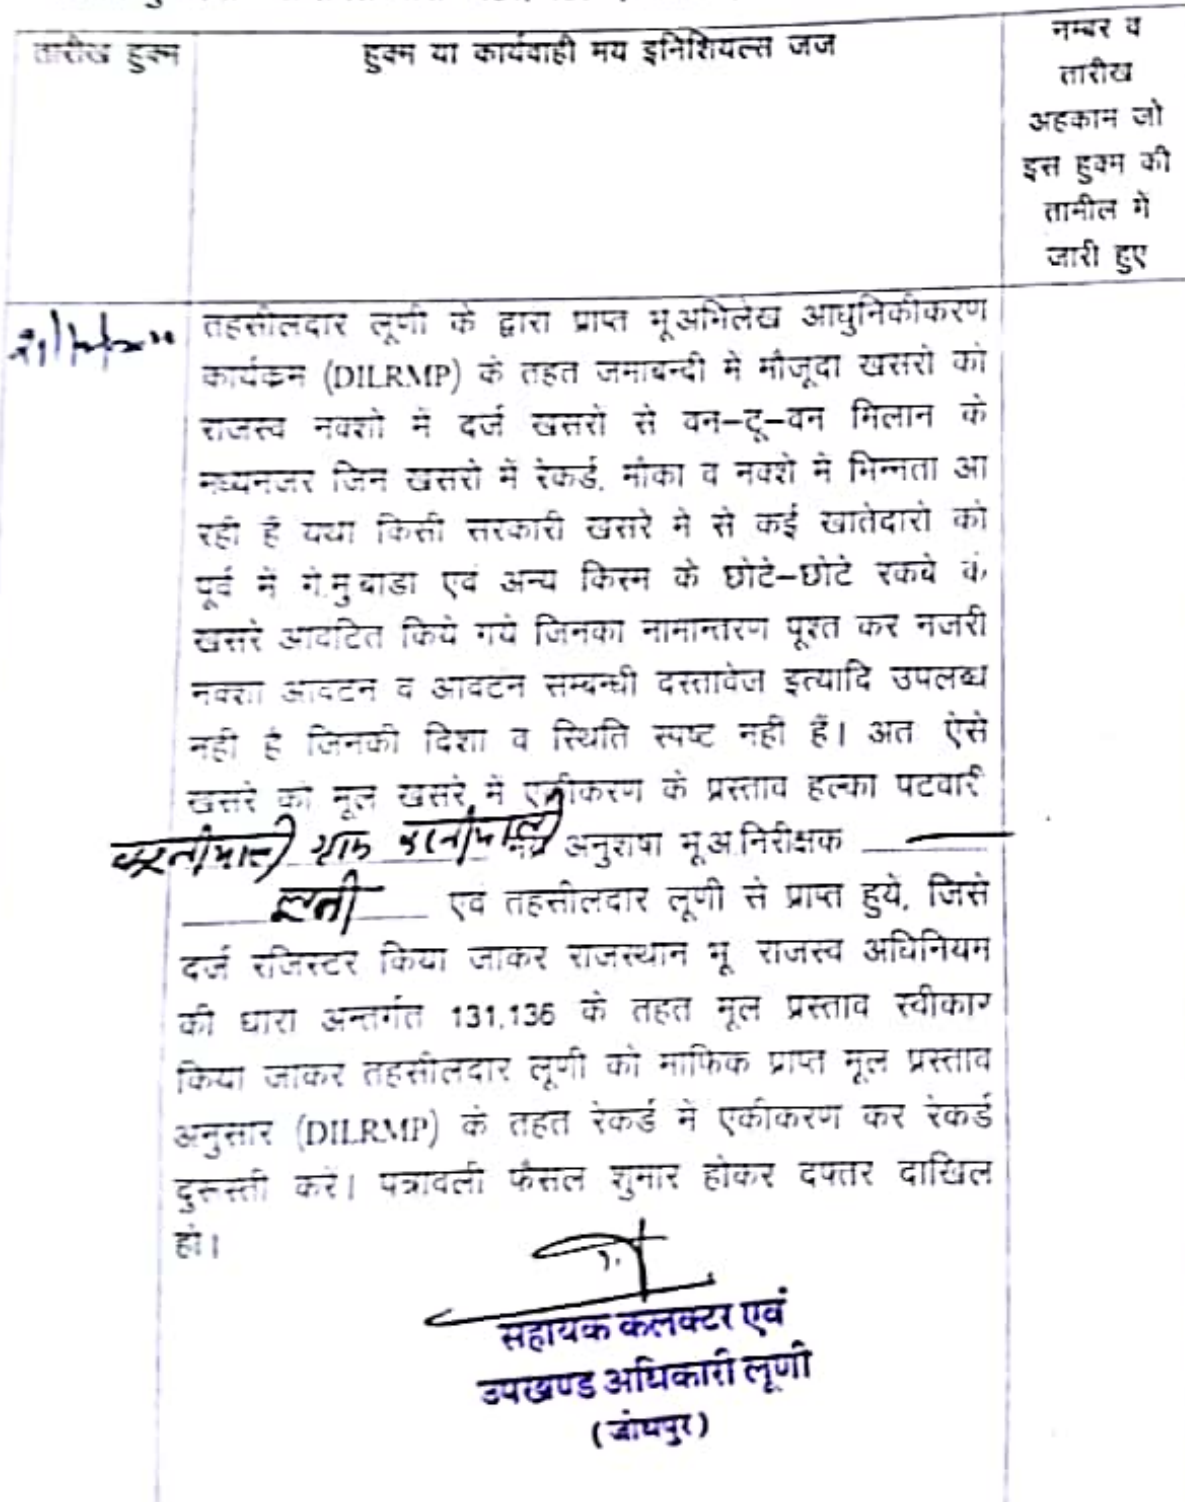 तारीख हुक्म
हुक्म या कार्यवाही मय इनिशियल्स जज
नम्बर व
तारीख
अहकाम जो
इस हुक्म की
तामील में
जारी हुए
तहसीलदार लूणी के द्वारा प्राप्त भू.अभिलेख आधुनिकीकरण
कार्यकम (DILRMP) के तहत जमाबन्दी मे मौजूदा खसरो को
राजस्व नक्शो में दर्ज खसरों से वन-टू-वन मिलान के
मध्यनजर जिन खसरो में रेकर्ड, मौका व नक्शे में भिन्नता आ
रही है यथा किसी सरकारी खसरे मे से कई खातेदारो को
पूर्व में गै.मु.बाडा एवं अन्य किस्म के छोटे-छोटे रकबे के
खसरे आवंटित किये गये जिनका नामान्तरण पूश्त कर नजरी
नक्शा आवटन व आवटन सम्बन्धी दस्तावेज इत्यादि उपलब्ध
नही है जिनकी दिशा व स्थिति स्पष्ट नही हैं। अत ऐसे
खसरे को मूल खसरे में एकीकरण के प्रस्ताव हल्का पटवारी
ग्राम अनुशषा भू.अ.निरीक्षक
लूणी एवं तहसीलदार लूणी से प्राप्त हुये, जिसे
दर्ज रजिस्टर किया जाकर राजस्थान भू राजस्व अधिनियम
की धारा अन्तर्गत 131,136 के तहत मूल प्रस्ताव स्वीकार
किया जाकर तहसीलदार लूणी को माफिक प्राप्त मूल प्रस्ताव
अनुसार (DILRMP) के तहत रेकर्ड में एकीकरण कर रेकर्ड
दुरूस्ती करें। पत्रावली फैसल शुमार होकर दफ्तर दाखिल
हो।
सहायक कलक्टर एवं
उपखण्ड अधिकारी लूणी
(जोधपुर)